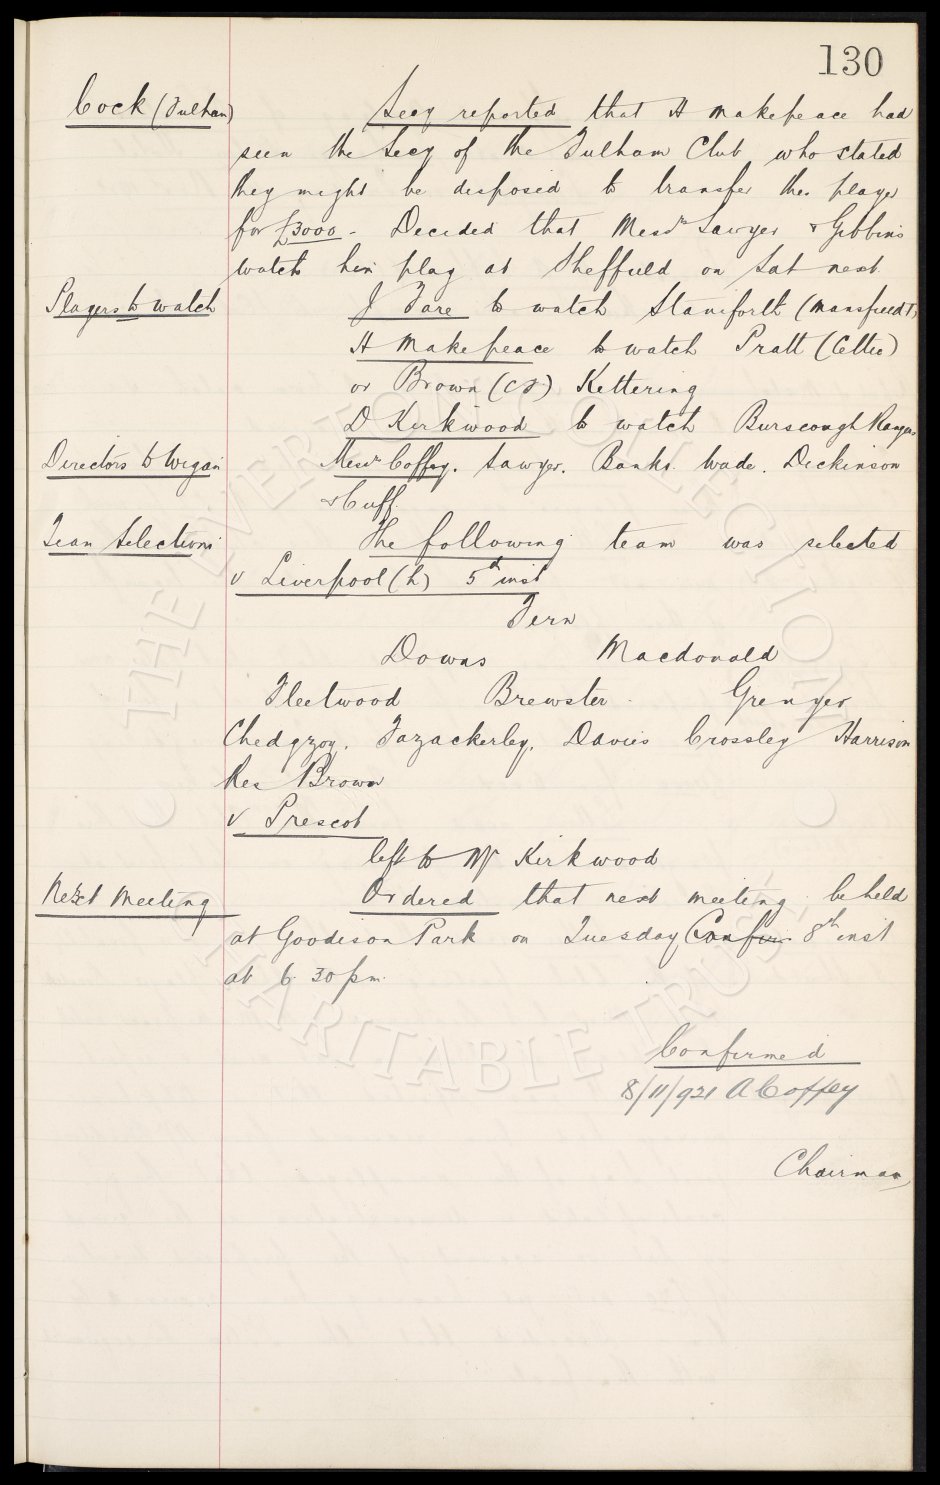 130
Cock (Fulham) Secy reported that H Makepeace had
seen the Secy of the Fulham Club who stated
they might be disposed to transfer the player
for £3000 - Decided that Messrs Sawyer & Gibbins
watch him play at Sheffield on Sat next.
Players to watch J Fare to watch Staniforth (Mansfield T)
H Makepeace to watch Pratt (Celtic)
or Brown (CF) Kettering
D Kirkwood to watch Burscough Rangers
Directors to Wigan Messrs Coffey. Sawyer. Banks. Wade. Dickinson
& Cuff.
Team Selections The following team was selected
v Liverpool (h) 5th inst
Fern
Downs Macdonald
Fleetwood Brewster Grenyer
Chedgzoy. Fazackerley. Davies Crossley Harrison
Res Brown
v Prescot
left to Mr Kirkwood
Next Meeting Ordered that next meeting be held
at Goodison Park on Tuesday Confir 8th inst
at 6.30 pm.
Confirmed
8/11/921 A Coffey
Chairman
© THE EVERTON COLLECTION CHARITABLE TRUST